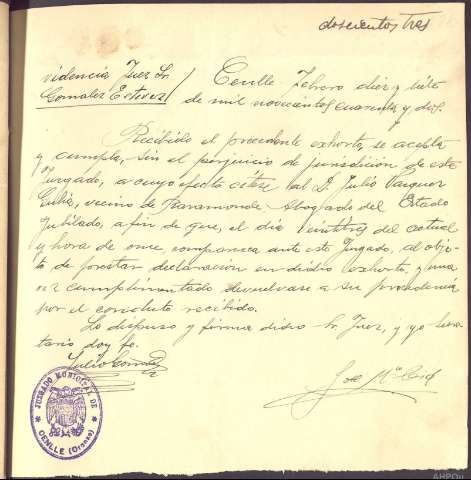 doscientos tres
videncia Juez Sr.
Gonzalez Estevez
Cenlle Febrero diez y siete
de mil novecientos cuarenta y dos.
Recibido el precedente exhorto, se acepta
y cumpla, sin el perjuicio de jurisdicion de este
Juzgado, a cuyo efecto citese al D. Julio Vazquez
vecino de Abogado del Estado
Jubilado, a fin de que, el dia veintitres del actual
y hora de once, comparezca ante este Juzgado, al obje-
to de prestar declaracion en dicho exhorto, y una
vez cumplimentado devuelvase a su procedencia
por el conducto recibido.
Lo dispuso y firma dicho Sr. Juez, y yo Secre-
tario doy fe.
Julio Gonzalez
Jose Mª
JUZGADO MUNICIPAL DE
CENLLE (Orense)
AHPOu